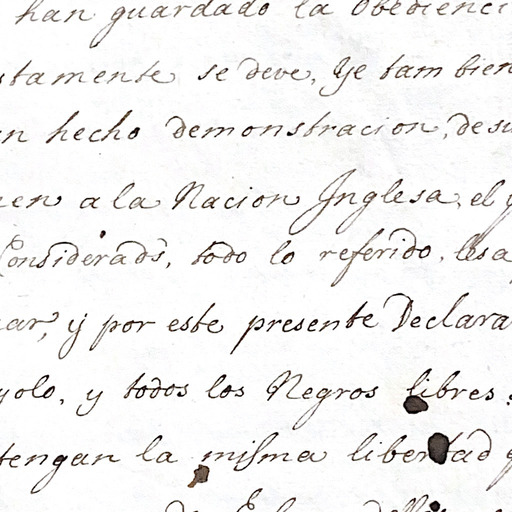 han guardado la Obedienci
stamente se deve, Ye tambien
n hecho demonstracion, de su
en a la Nacion Inglesa, el
Considerado, todo lo referido, les a
ar, y por este presente Declara
yolo, y todos los Negros libres
tengan la misma libertad